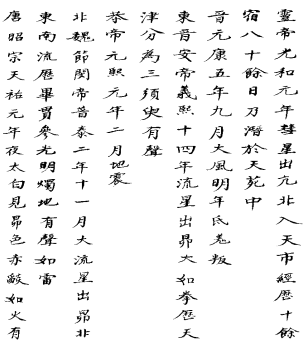 靈帝光和元年彗星出亢北入天市經歷十餘
宿八十餘日乃潛於天苑中
晉元康五年九月大風明年氐羌叛
東晉安帝義熙十四年流星出昴大如拳歷天
津分為三須臾有聲
恭帝元熙元年二月地震
北魏節閔帝普泰二年十一月大流星出昴北
東南流歷畢貫參光明燭地有聲如雷
唐昭宗天祐元年夜太白見昴色赤燄如火有